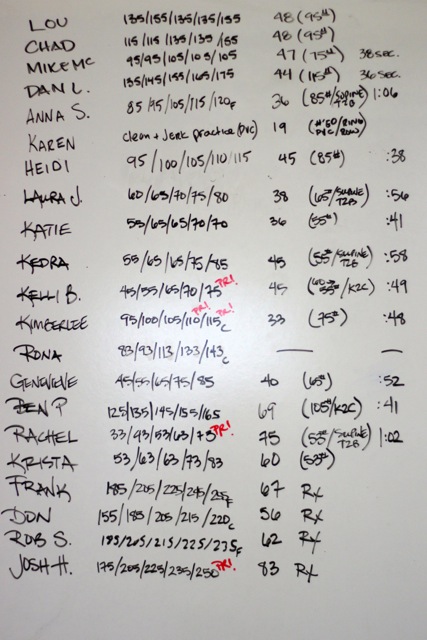 LOU 135/155/135/135/135 48 (95#)
CHAD 115/115/135/135/155 48 (95#)
MIKE MC 95/95/105/105/105 47 (75#) 38 sec.
DAN L. 135/145/155/165/175 44 (115#) 36 sec.
ANNA S. 85/95/105/115/120F 36 (85#/SUPINE T2B) 1:06
KAREN clean + jerk practice (PVC) 19 (#50/RING PVC/ROW)
HEIDI 95/100/105/110/115 45 (85#) :38
LAURA J. 60/65/70/75/80 38 (65#/SUPINE T2B) :56
KATIE 55/65/65/70/70 36 (55#) :41
KEDRA 55/65/65/75/85 45 (55#/SUPINE T2B) :58
KELLI B. 45/55/65/70/75 PR! 45 (55#/K2C) :49
KIMBERLEE 95/100/105/110 PR!/115C PR! 33 (75#) :48
RONA 83/93/113/133/143C — —
GENEVIEVE 45/55/65/75/85 40 (65#) :52
BEN P 125/135/145/155/165 69 (105#/K2C) :41
RACHEL 33/43/53/63/73 PR! 75 (55#/SUPINE T2B) 1:02
KRISTA 53/63/63/73/83 60 (53#)
FRANK 185/205/225/245/255F 67 Rx
DON 155/185/205/215/220C 56 Rx
ROB S. 185/205/215/225/235F 62 Rx
JOSH H. 175/205/225/235/250 PR! 83 Rx